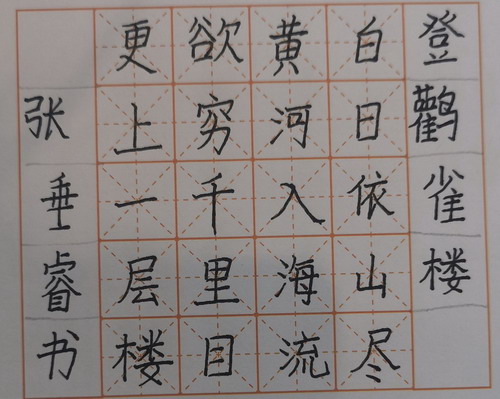 登鹳雀楼
白日依山尽
黄河入海流
欲穷千里目
更上一层楼
张垂睿书